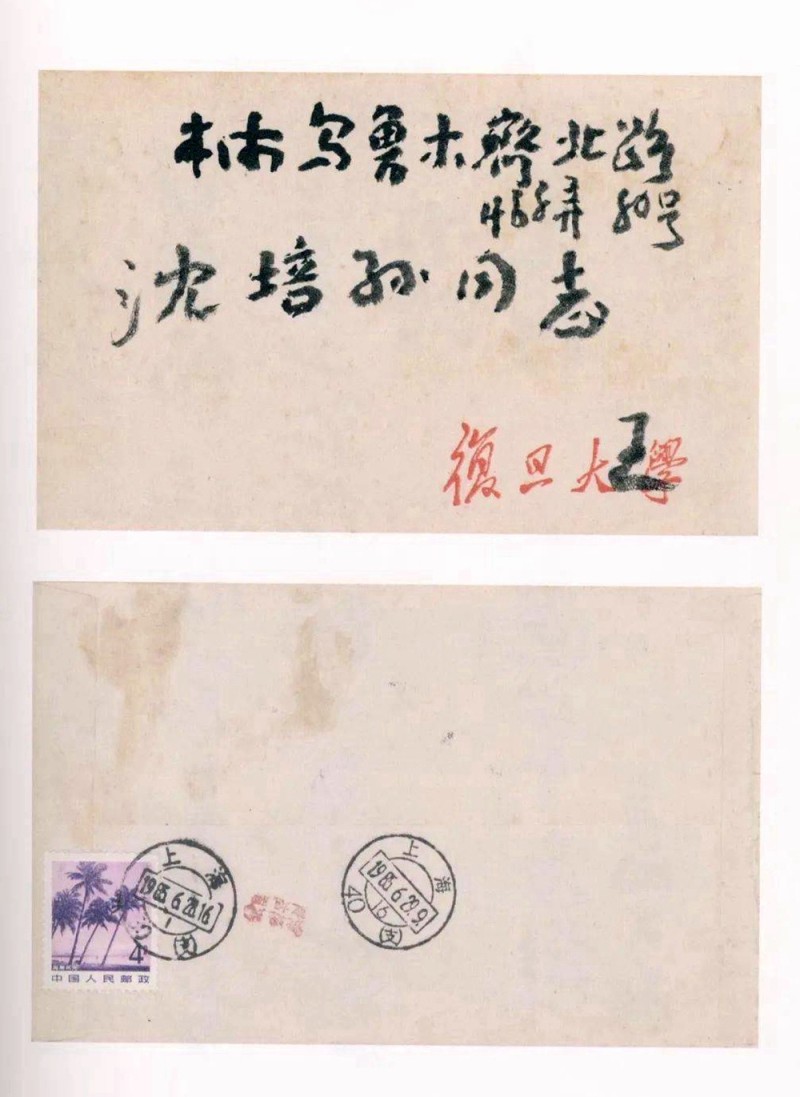 本市乌鲁木齊北路
弄 号
沈培孙同志
復旦大學
王
上海
1985.6.28.16
(支)
上海
1985.6.29.9
16
(支)
40
4
中国人民邮政